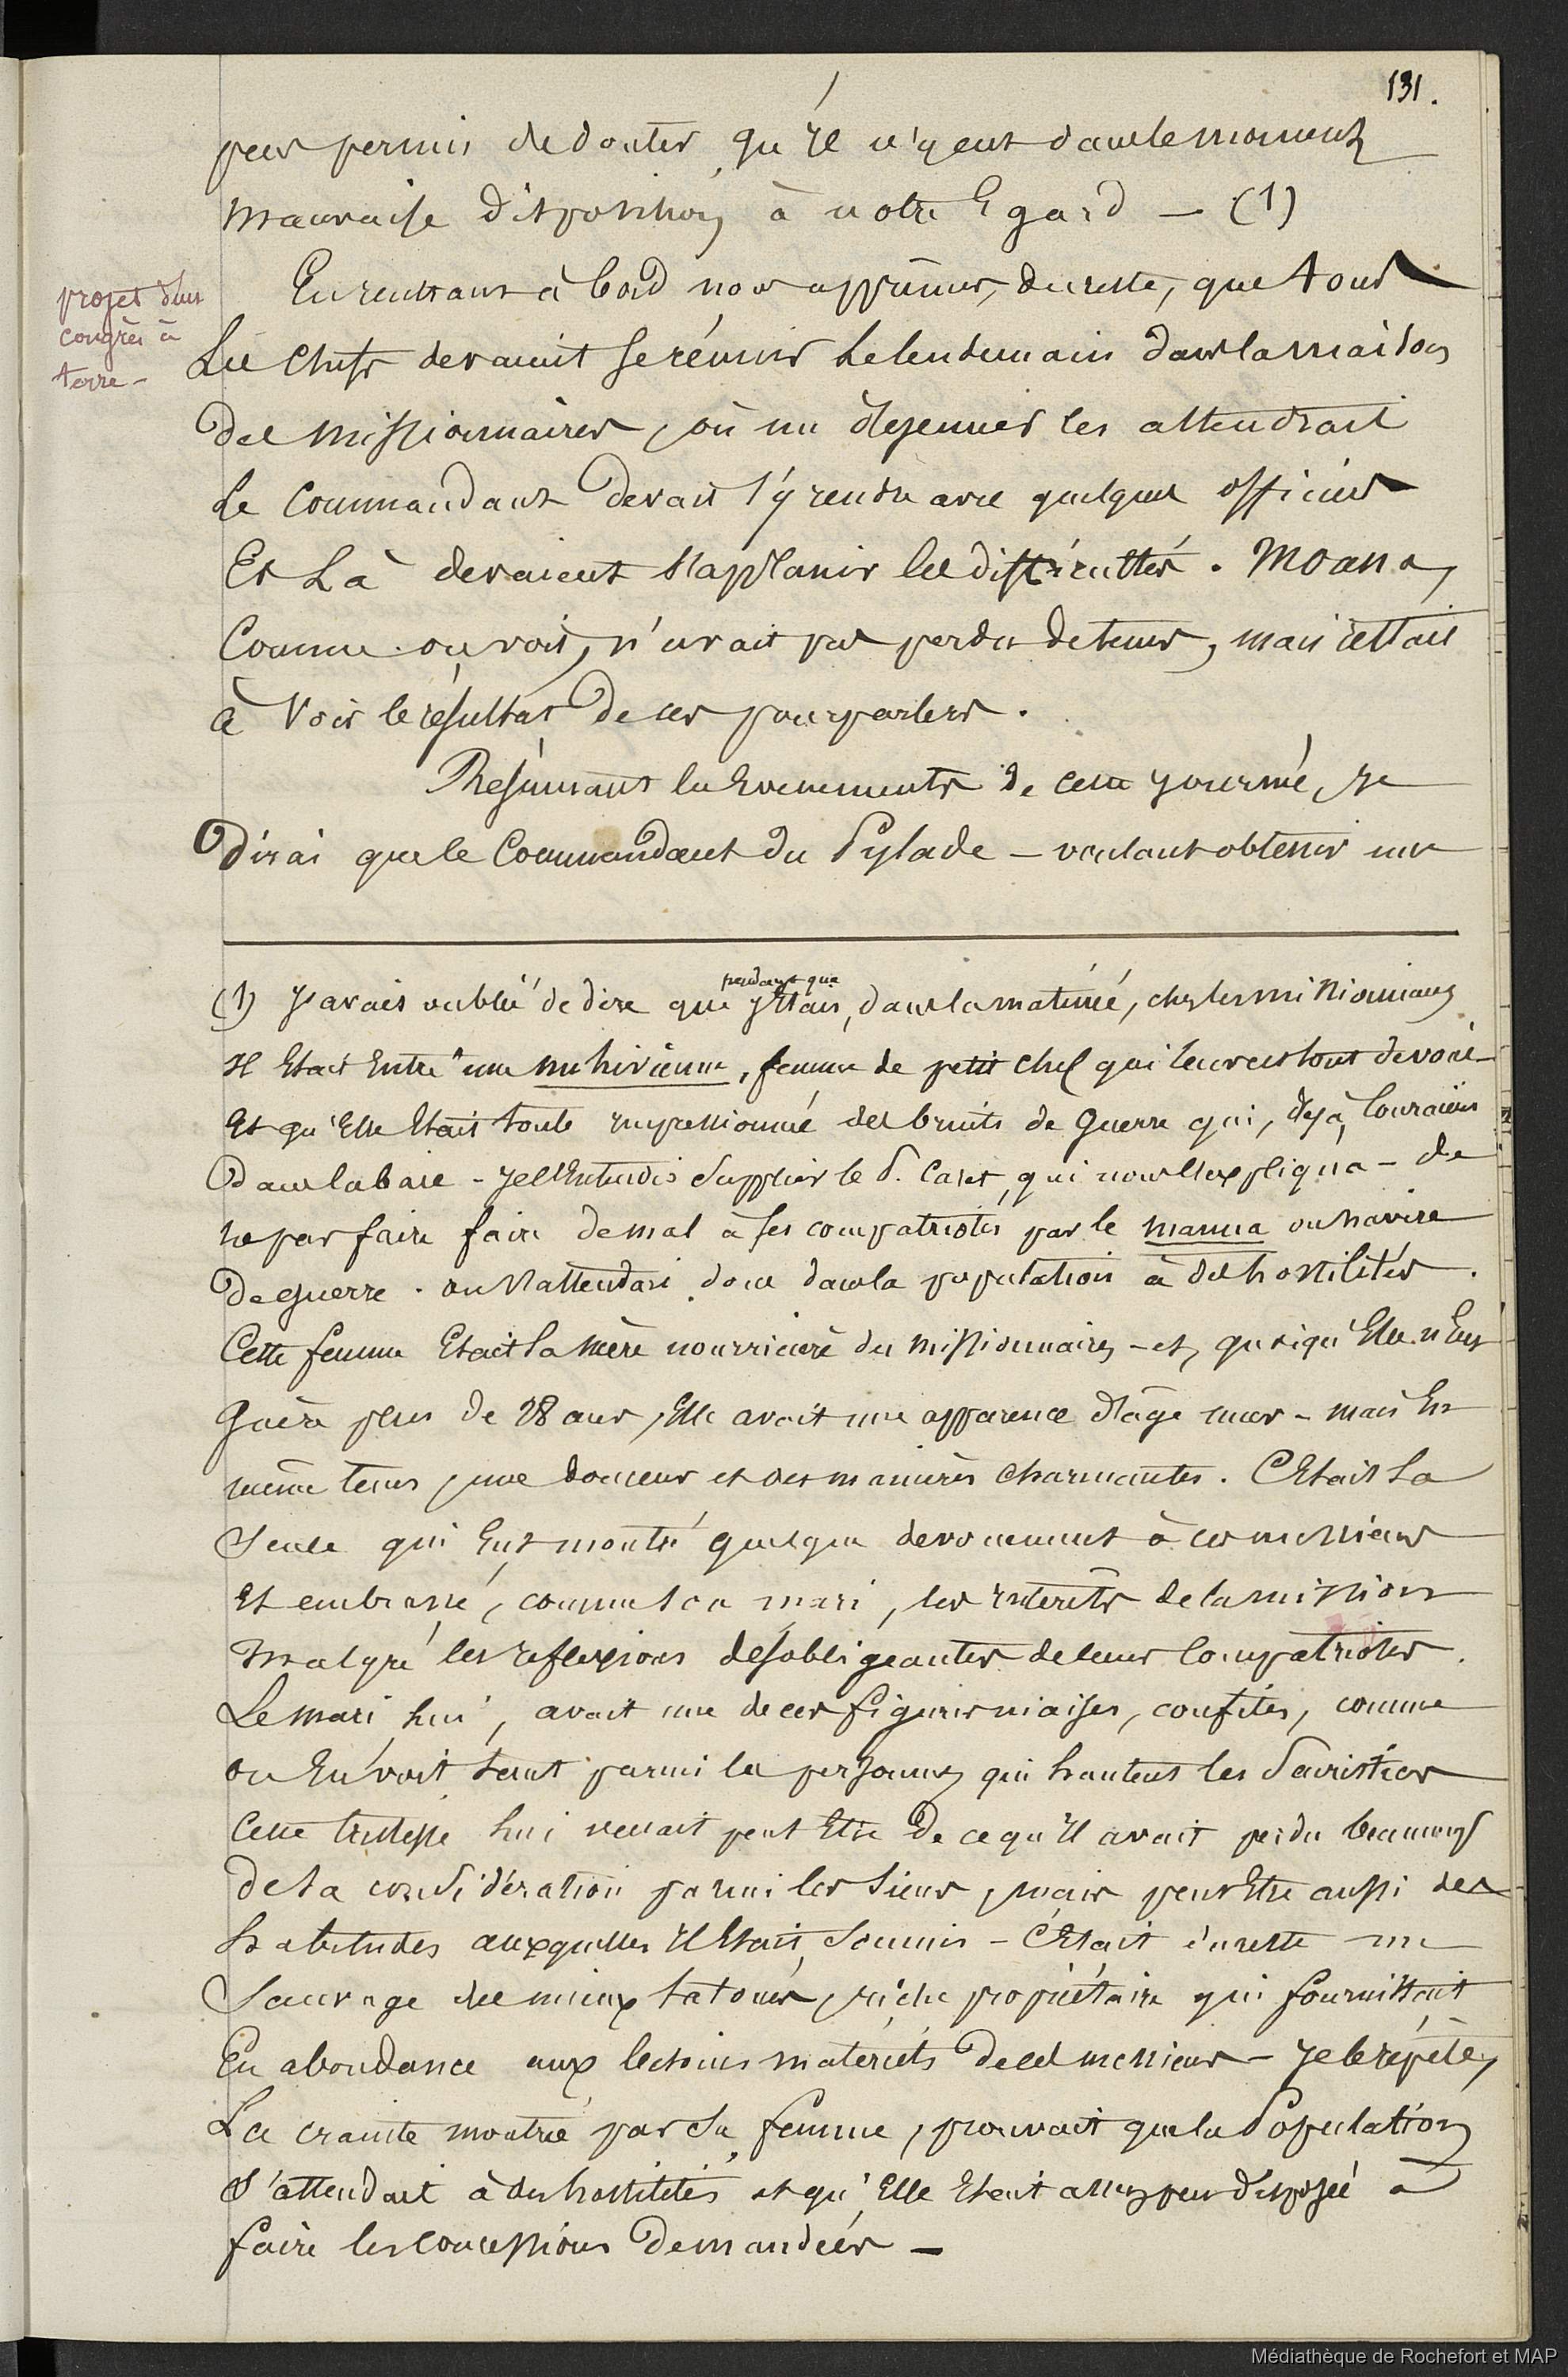 131.
peu permis de douter qu'il n'y eut dans le moment
mauvaise disposition à notre Egard — (1)
projet d'un
congrès à
terre —
En rentrant à bord nous apprîmes, du reste, que tous
Les chefs devaient se réunir le lendemain dans la maison
des missionnaires, où un dejeuner les attendrait
Le Commandant devait s'y rendre avec quelques officiers
Et Là devaient s'applanir les difficultés. Moana,
Comme on voit, n'avait pas perdu de tems, mais c'ettait
à Voir le résultat de ces pourparlers.
Resumant les Evenements de cette journée, je
dirai que le Commandant du Pylade — voulant obtenir une
(1) J'avais oublié de dire que pendant que j'Etais, dans la matinée, chez les missionnaires
Il Etait Entré une nuhivienne, femme de petit chef qui leur est tout devoué —
Et qu'Elle Etait toute impressionnée des bruits de Guerre qui, déjà, couraient
Dans la baie — Je l'Entendis supplier le P. Caret, qui nous l'expliqua — de
ne pas faire faire de mal à ses compatriotes par le manua ou navire
De guerre. on s'attendait donc dans la population à des hostilités.
Cette femme Etait la mère nourricière des missionnaires — et, quoiqu'Elle n'Eut
Guère plus de 28 ans, Elle avait une apparence d'âge mur — mais En
même tems, une douceur et des manières charmantes. C'Etait la
Seule qui Eut montré quelque devouement à ces messieurs
Et embrassé, comme son mari, les interêts de la mission
Malgré les reflexions désobligeantes de leurs compatriotes.
Le mari, lui, avait une de ces figures niaises, confites, comme
on En voit tant parmi les personnes qui hantent les Sacristies
Cette tristesse lui venait peut Etre De ce qu'Il avait perdu beaucoup
de sa considération parmi les siens, mais peut Etre aussi des
habitudes auxquelles Il Etait soumis — C'Etait du reste un
Sauvage des mieux tatoués, riche propriétaire qui fournissait
En abondance aux besoins matériels De ces messieurs — Je le répète,
La crainte montrée par sa femme, prouvait que la Population
S'attendait à des hostilités et qu'Elle Etait assez peu disposée à
faire les concessions Demandées —
Médiathèque de Rochefort et MAP